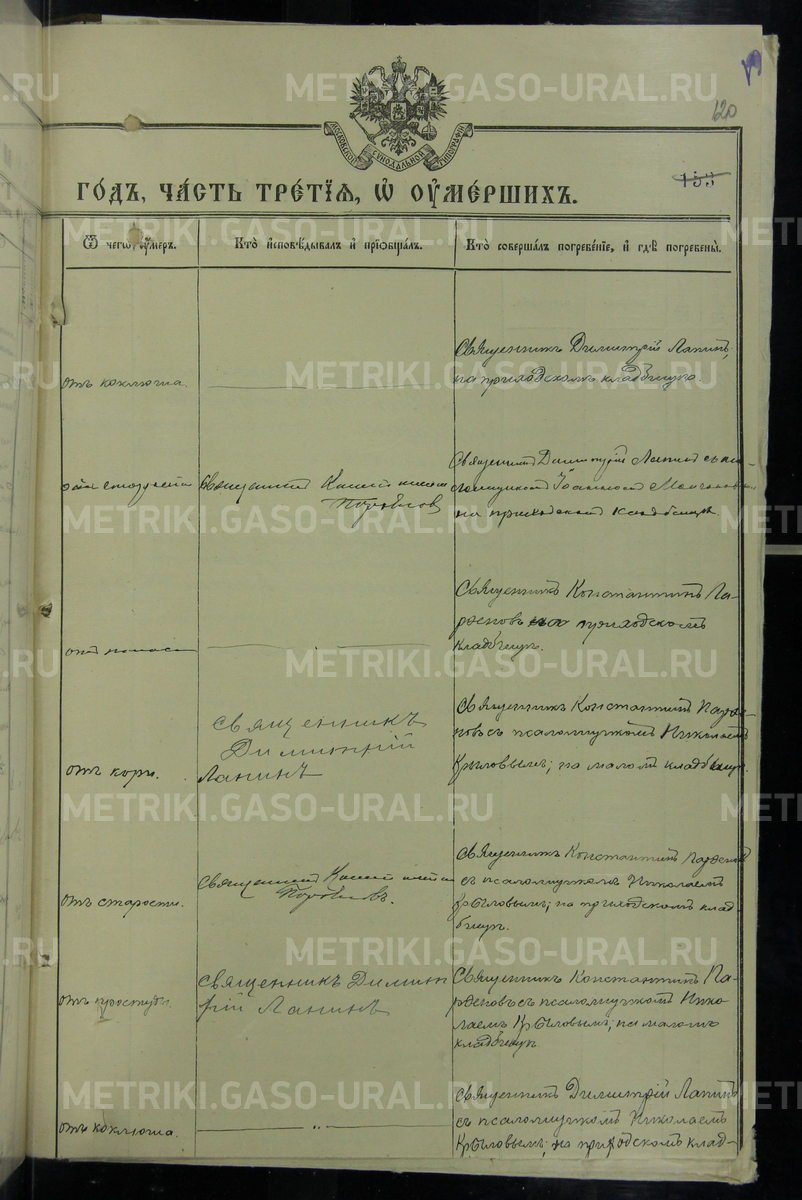 120
МОСКОВСКОЙ СѴНОДАЛЬНОЙ ТИПОГРАФІИ
155
ГО́ДЪ, ЧА́СТЬ ТРЕ́ТІѦ, Ѡ҆ ОУ҆МЕ́РШИХЪ.
Ѿ чегѡ̀ оу҆́меръ.
Кто̀ и҆сповѣ́дывалъ и҆ прїѡбща́лъ.
Кто̀ соверша́лъ погребе́нїе, и҆ гдѣ̀ погребены̀.
отъ коклюша.
Священникъ Димитрій Лапинъ,
на приходскомъ кладбищѣ.
Священникъ Константинъ
Парѳеновъ
Священникъ Димитрій Лапинъ съ пса-
ломщикомъ Іоанномъ
на приходскомъ кладбищѣ.
отъ поноса
Священникъ Константинъ Па-
рѳеновъ на приходскомъ
кладбищѣ.
отъ кори.
Священникъ
Димитрій
Лапинъ
Священникъ Константинъ Парѳе-
новъ съ псаломщикомъ Николаемъ
Крыловымъ; на маломъ кладбищѣ.
отъ старости.
Священникъ Константинъ
Парѳеновъ.
Священникъ Константинъ Парѳеновъ
съ псаломщикомъ Николаемъ
Крыловымъ; на приходскомъ клад-
бищѣ.
отъ простуды
Священникъ Димит
рій Лапинъ
Священникъ Константинъ Па-
рѳеновъ съ псаломщикомъ Нико-
лаемъ Крыловымъ; на маломъ
кладбищѣ.
отъ коклюша.
Священникъ Димитрій Лапинъ
съ псаломщикомъ Николаемъ
Крыловымъ; на приходскомъ клад-
METRIKI.GASO-URAL.RU